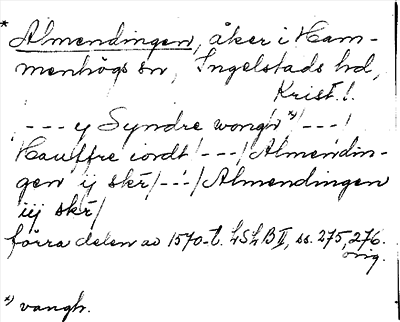 * Almendingen, åker i Ham-
menhögs sn, Ingelstads hd,
Krist. l.
/ - - - y Syndre wongh x) / - - - /
Hauffre iordt / - - - / Almendin-
gen ij skr / - - - / Almendingen
iij skr /
förra delen av 1570-t. LSLB II, ss. 275, 276.
orig.
x) vangh.